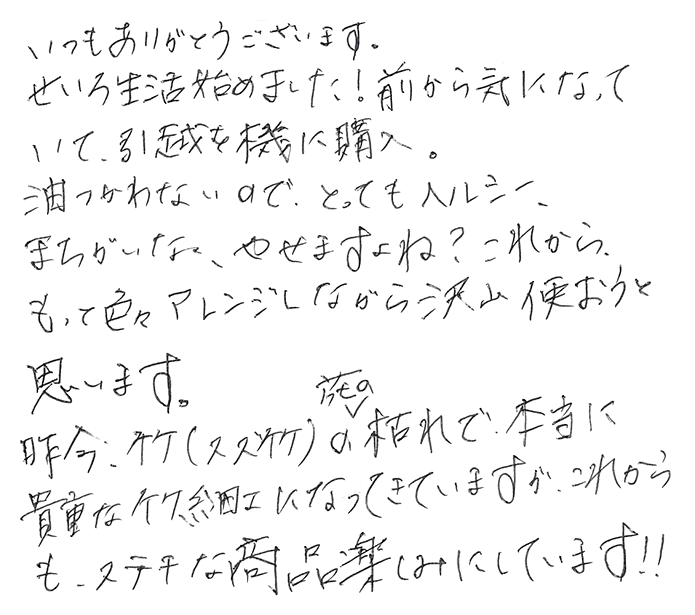 いつもありがとうございます。
せいろ生活始めました!前から気になって
いて、引越を機に購入。
油つかわないので、とってもヘルシー、
まちがいなく、やせますよね?これから、
もっと色々アレンジしながら沢山使おうと
思います。
昨今、竹(スズ竹)の枯れで、本当に
貴重な竹細工になってきていますが、これから
も、ステキな商品楽しみにしています!!